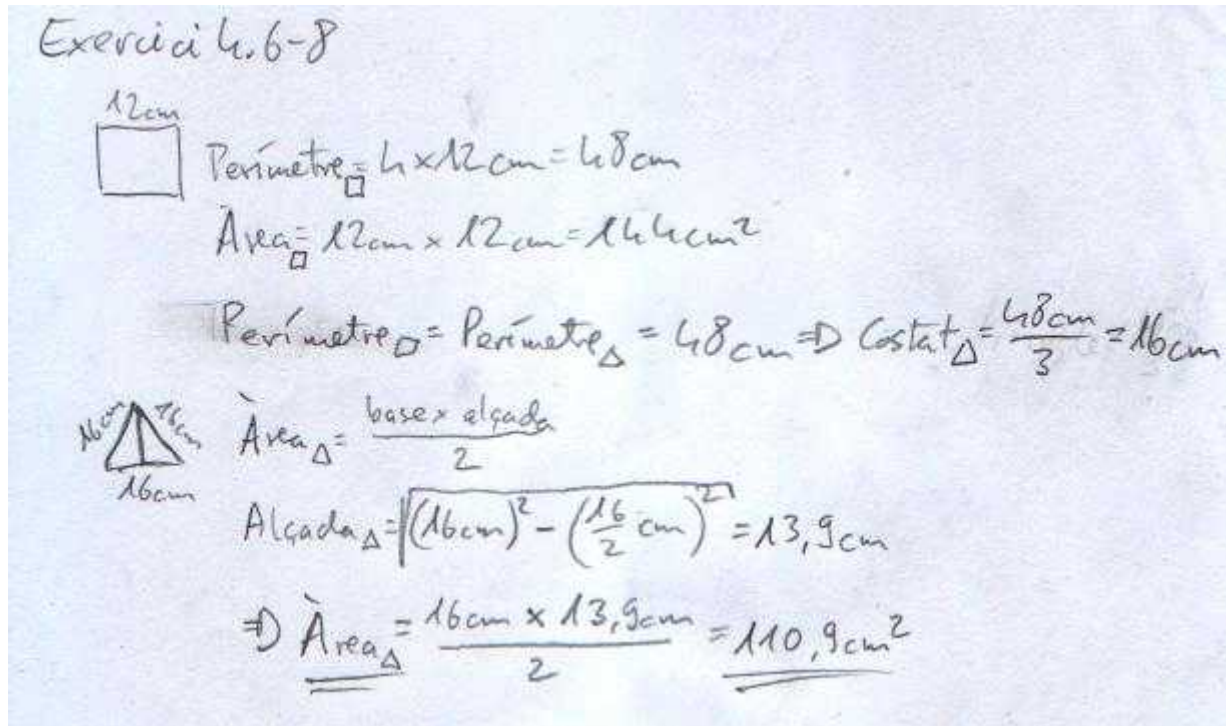 Exercici 4.6-8
12cm
Perímetre□ = 4×12cm = 48cm
Àrea□ = 12cm × 12cm = 144cm²
Perímetre□ = Perímetre△ = 48cm ⇒ Costat△ = 48cm/3 = 16cm
16cm 16cm
16cm
Àrea△ = base × alçada / 2
Alçada△ = √((16cm)² - (16/2 cm)²) = 13,9cm
⇒ Àrea△ = 16cm × 13,9cm / 2 = 110,9cm²